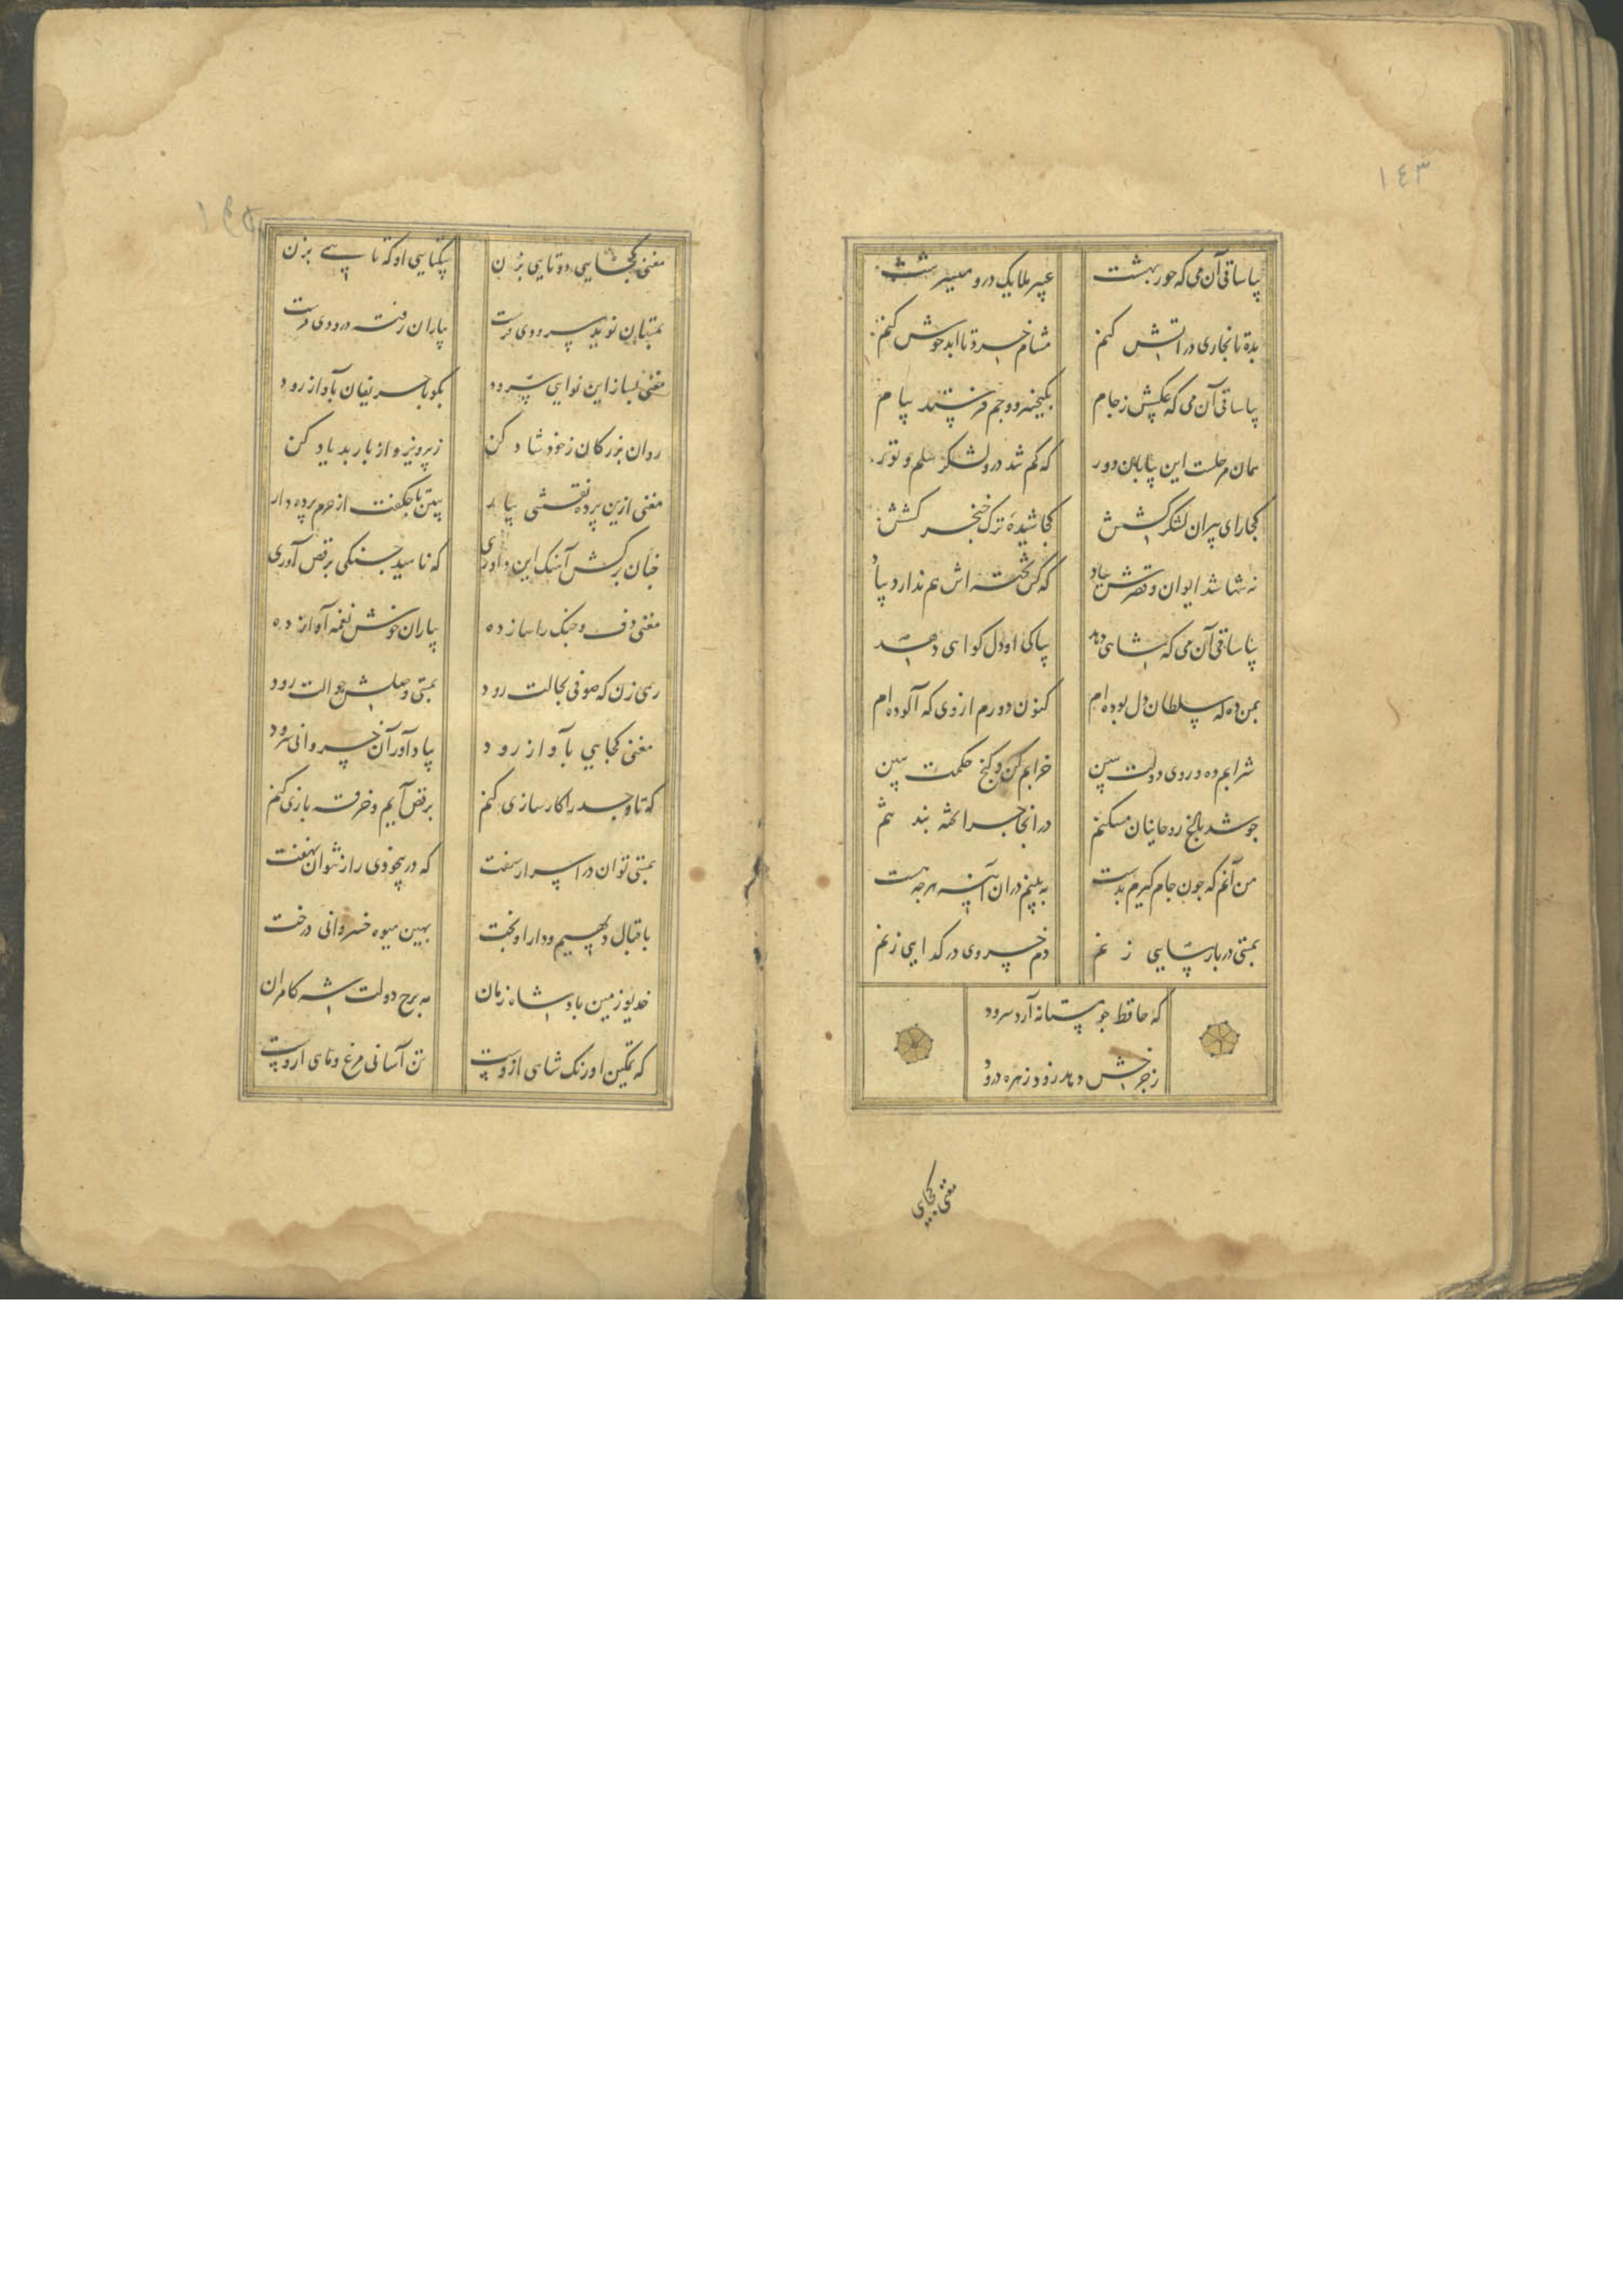 ١٤٣
بیا ساقی آن می که حور بهشت
عبیر ملایک درو می سرشت
بده تا بخاری در آتش کنم
مشام خرد تا ابد خوش کنم
بیا ساقی آن می که عکسش ز جام
بکیخسرو و جم فرستد پیام
همان مرحلست این بیابان دور
که کم شد درو لشکر سلم و تور
کجا رای پیران لشکر کشش
کجا شیده ترک خنجر کشش
نه تنها شد ایوان و قصرش بباد
که کس تخته اش هم ندارد بیاد
بیا ساقی آن می که شاهی دهد
بپاکی او دل کواهی دهد
بمن ده که سلطان دل بوده ام
کنون دورم از وی که آلوده ام
شرابم ده و روی دولت ببین
خرابم کن و کنج حکمت ببین
جو شد باغ روحانیان مسکنم
در انجا جرا تخته بند تنم
من آنم که جون جام کیرم بدست
به بینم دران آینه هرجه هست
بمستی در پارسایی زنم
دم خسروی در کدایی زنم
که حافظ جو مستانه آرد سرود
ز جرخش دهد رود زهره درود
مغنی کجایی
مغنی کجایی دوتایی بزن
بیکتایی او که تایی بزن
بمستان نوید سرودی فرست
بیاران رفته درودی فرست
مغنی بساز این نوایی سرود
بکو با حریفان بآواز رود
روان بزرکان ز خود شاد کن
ز پرویز و از باربد یاد کن
مغنی ازین پرده نقشی بیار
ببین تا جکفت از حرم پرده دار
جنان برکش آهنک این داوری
که ناهید جنکی برقص آوری
مغنی دف و جنک را ساز ده
بیاران خوش نغمه آواز ده
رهی زن که صوفی بحالت رود
بمستی وصلش حوالت رود
مغنی کجایی بآواز رود
بیاد آور آن خسروانی سرود
که تا وجد را کارسازی کنم
برقص آیم و خرقه بازی کنم
بمستی توان در اسرار سفت
که در بیخودی راز نتوان نهفت
باقبال دیهیم و دارا و تخت
بهین میوه خسروانی درخت
خدیو زمین پادشاه زمان
مه برج دولت شه کامران
که تمکین اورنک شاهی ازوست
تن آسانی مرغ و ماهی ازوست